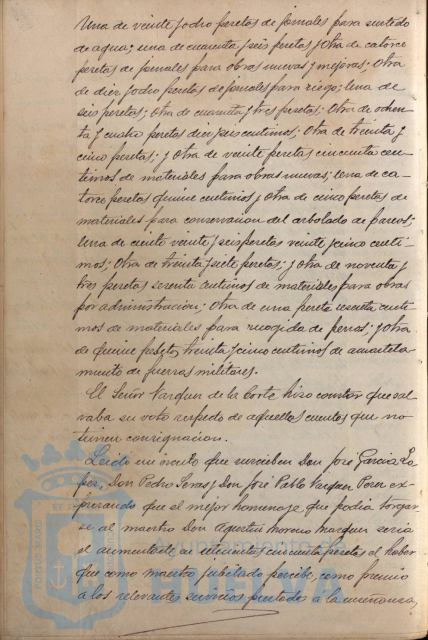 Una de veinte y ocho pesetas de jornales para surtido
de agua; una de cuarenta y seis pesetas y otra de catorce
pesetas de jornales para obras nuevas y mejoras; Otra
de diez y ocho pesetas de jornales para riego; Una de
seis pesetas; Otra de cuarenta y tres pesetas; Otra de ochen-
ta y cuatro pesetas diez y seis centimos; Otra de treinta y
cinco pesetas; y Otra de veinte pesetas cincuenta cen-
timos de materiales para obras nuevas; Una de ca-
torce pesetas quince centimos y otra de cinco pesetas de
materiales para conservacion del arbolado de paseos;
Una de ciento veinte y seis pesetas veinte y cinco centi-
mos; Otra de treinta y siete pesetas; y otra de noventa y
tres pesetas sesenta centimos de materiales para obras
por administracion; Otra de una peseta centi-
mos de materiales para recogida de perros; y otra
de quince pesetas treinta y cinco centimos de amartela-
miento de fuerzas militares.
El Señor Vazquez de la Corte hizo constar que sal-
vaba su voto respecto de aquellas cuentas que no
tuviesen consignacion.
Leido un escrito que suscriben Don José Garcia Lo-
pez, Don Pedro y Don José Pablo Vazquez ex-
presando que el mejor homenaje que podia torgar-
se al maestro Don Agustin Moreno Marquez seria
el aumentarle en cincuenta pesetas el haber
que como maestro jubilado percibe, como premio
a los relevantes servicios prestados á la enseñanza,